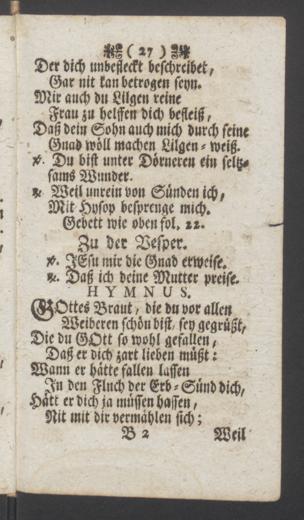 ( 27 )
Der dich unbefleckt beschreibet,
Gar nit kan betrogen seyn.
Mir auch du Lilgen reine
Frau zu helffen dich befleiß,
Daß dein Sohn auch mich durch seine
Gnad wöll machen Lilgen-weiß.
℣. Du bist unter Dörneren ein seltz-
sams Wunder.
℟. Weil unrein von Sünden ich,
Mit Hysop besprenge mich.
Gebett wie oben fol. 22.
Zu der Vesper.
℣. JEsu mir die Gnad erweise.
℟. Daß ich deine Mutter preise.
HYMNUS.
GOttes Braut, die du vor allen
Weiberen schön bist, sey gegrüßt,
Die du GOtt so wohl gefallen,
Daß er dich zart lieben müßt:
Wann er hätte fallen lassen
In den Fluch der Erb-Sünd dich,
Hätt er dich ja müssen hassen,
Nit mit dir vermählen sich;
B 2 Weil